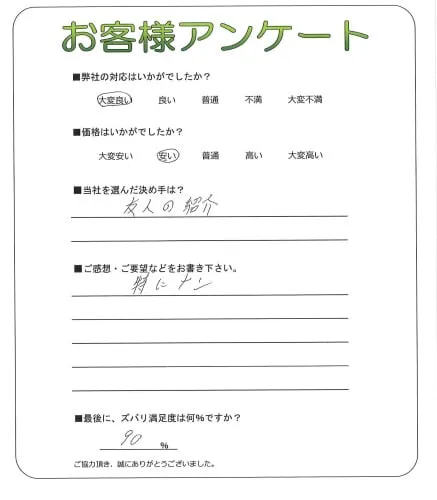 お客様アンケート
■弊社の対応はいかがでしたか?
大変良い 良い 普通 不満 大変不満
■価格はいかがでしたか?
大変安い 安い 普通 高い 大変高い
■当社を選んだ決め手は?
友人の紹介
■ご感想・ご要望などをお書き下さい。
特にナシ
■最後に、ズバリ満足度は何%ですか?
90 %
ご協力頂き、誠にありがとうございました。